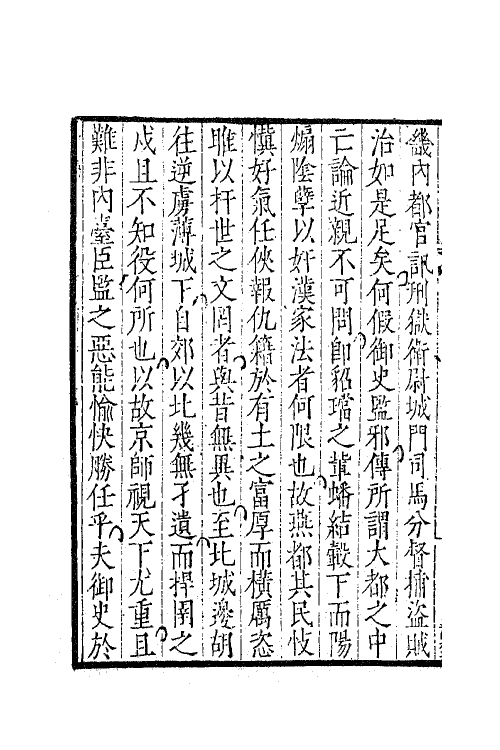 畿内都官訊刑獄衛尉城門司馬分督捕盜賊
治如是足矣何假御史監邪傳所謂大都之中
亡論近親不可問卽貂璫之輩蟠結轂下而陽
煽陰孽以奸漢家法者何限也故燕都其民忮
懻好氣任俠報仇籍於有土之富厚而橫厲恣
睢以扞世之文罔者與昔無異也至北城邊胡
往逆虜薄城下自郊以北幾無孑遺而捍圉之
戍且不知役何所也以故京師視天下尤重且
難非内臺臣監之惡能愉快勝任乎夫御史於